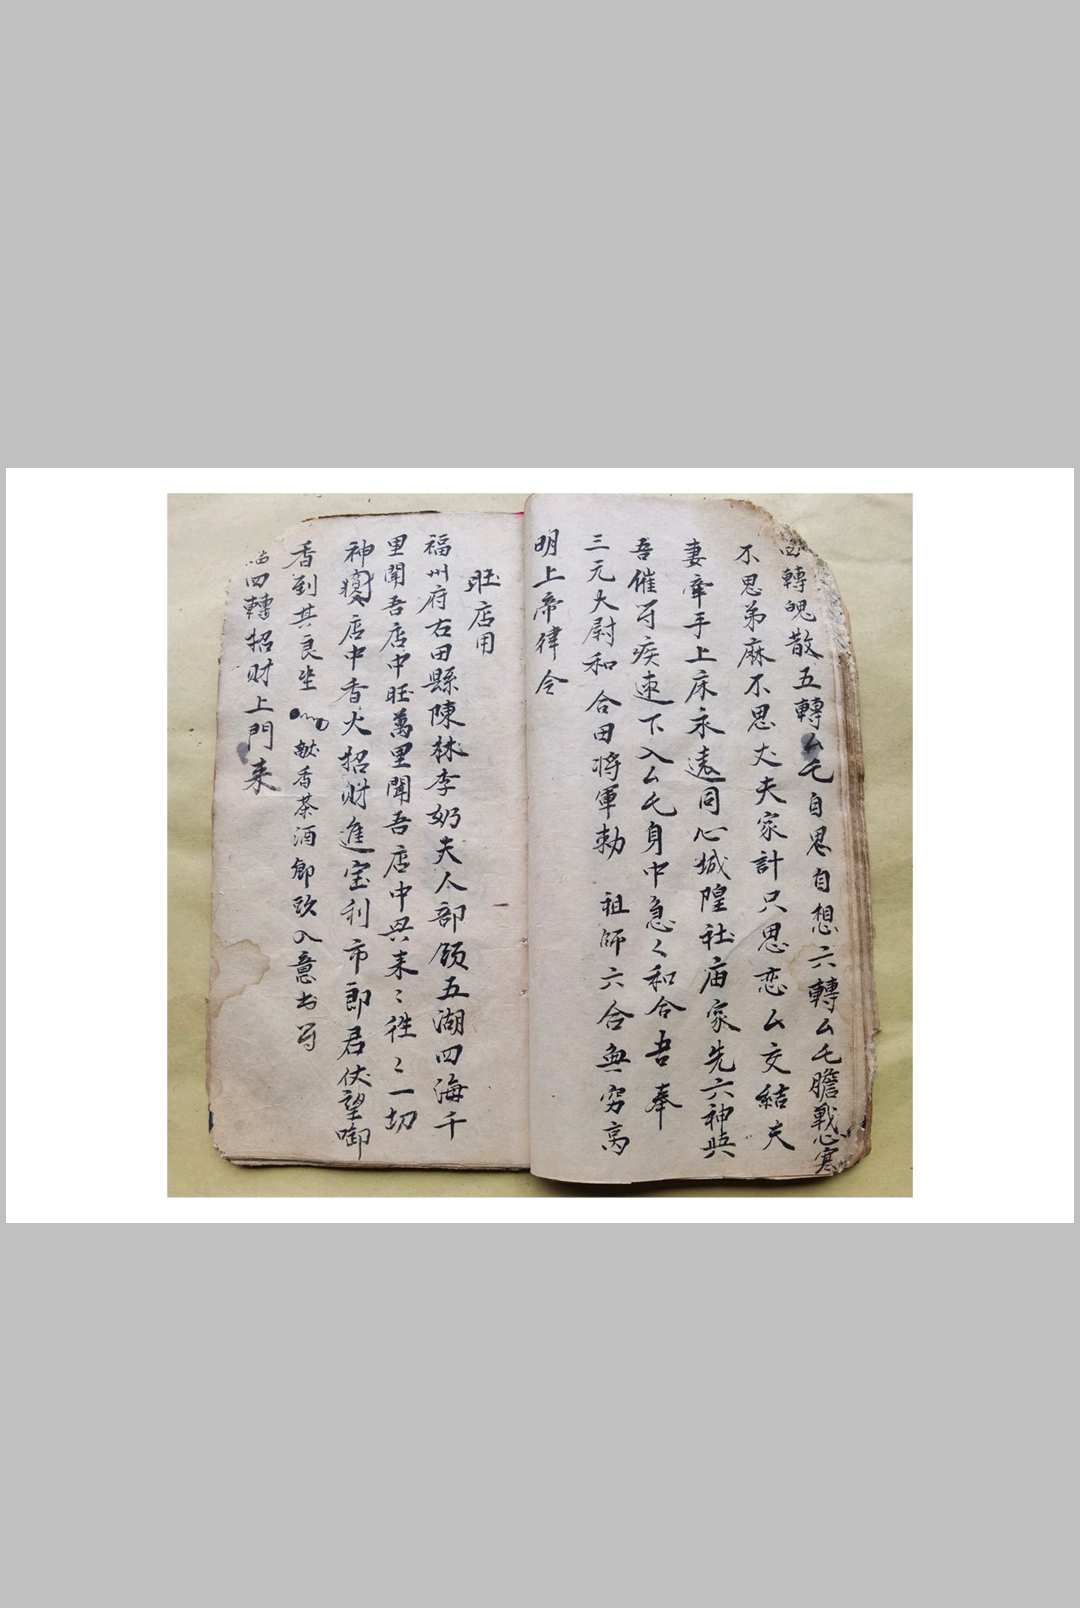 四轉魄散五轉厶乇自思自想六轉厶乇膽戰心寒
不思弟麻不思丈夫家計只思恋厶交結夫
妻牵手上床永遠同心城隍社庙家先六神與
吾催符疾速下入厶乇身中急々和合吾奉
三元大尉和合田将軍勅 祖師六合無穷高
明上帝律令
旺店用
福州府右田縣陳林李奶夫人部領五湖四海千
里聞吾店中旺萬里聞吾店中興来〻往〻一切
神 店中香火招財進宝利市郎君伏望啣
香到其良坐 献香茶酒 入意书符
四轉招财上門来